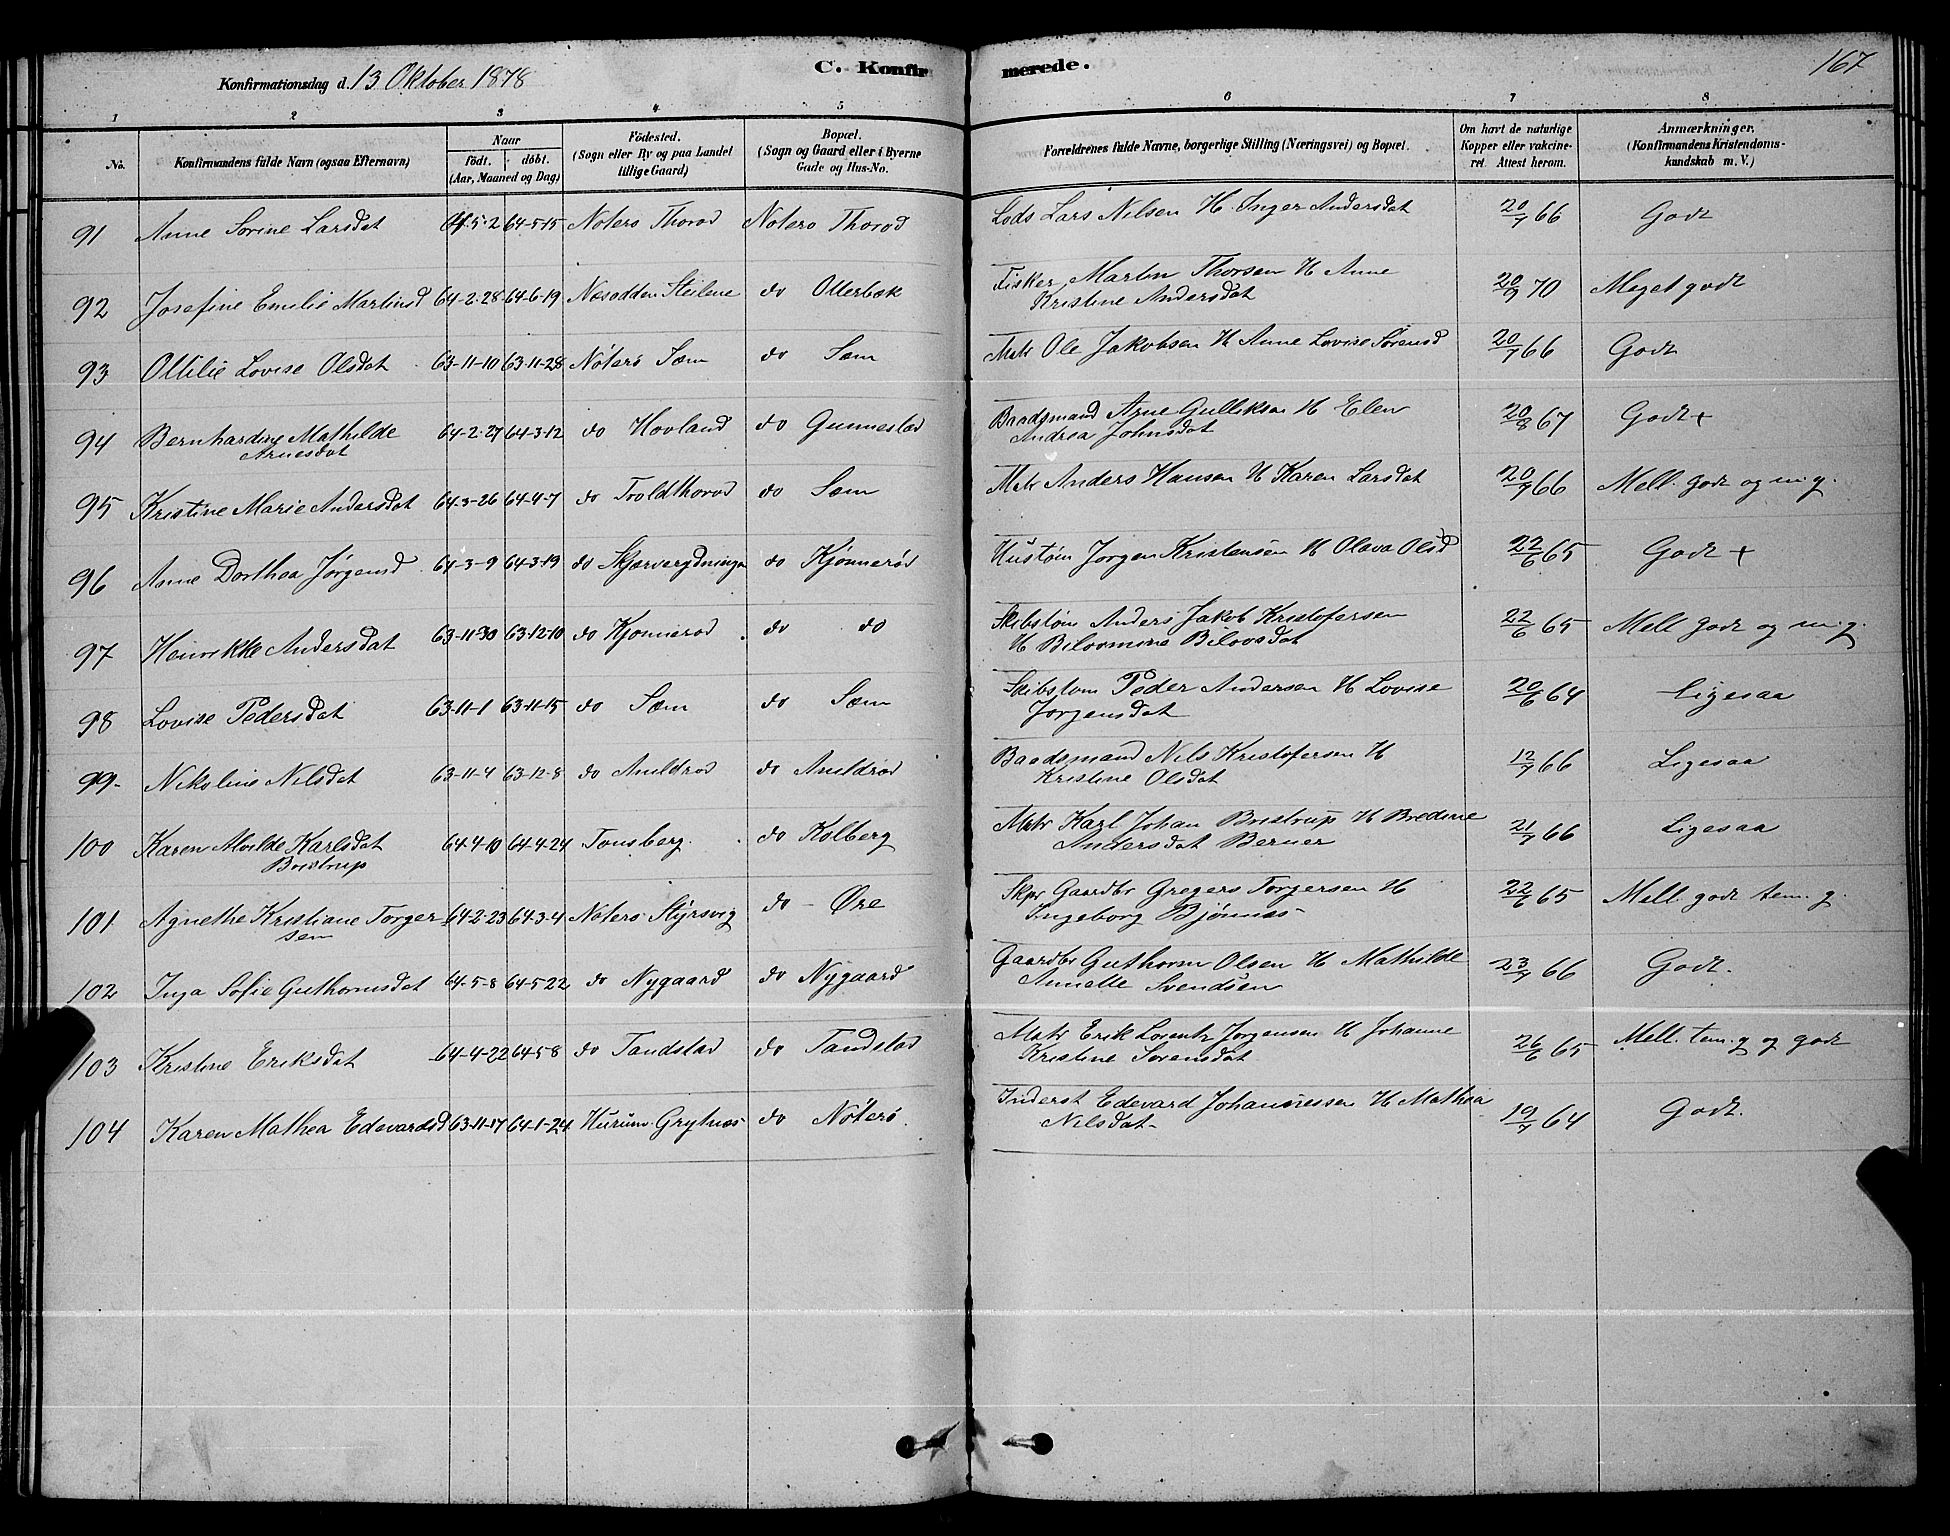 Konfirmationsdag d. 13 Oktober 1878
C. Konfirmerede.
167
1 2 3 4 5 6 7 8
No.
Konfirmandens fulde Navn (ogsaa Efternavn)
Naar
födt. döbt.
(Aar, Maaned og Dag)
Födested.
(Sogn eller By og paa Landet
tillige Gaard)
Bopæl.
(Sogn og Gaard eller i Byerne
Gade og Hus-No.
Forældrenes fulde Navne, borgerlige Stilling (Næringsvei) og Bopæl.
Om havt de naturlige
Kopper eller vakcine-
ret. Attest herom.
Anmærkninger.
(Konfirmandens Kristendoms-
kundskab m. V.)
91 Anne Sorine Larsdat 64-5-2 64-5-15 Notero Thorod Notero Thorod Lods Lars Nilsen H. Inger Andersdat 20/7 66 Godt
92 Josefine Emilie Martinsd 64-2-28 64-6-19 Næsodden Steilene do Otterbæk Fisker Martin Thorsen H Anne
Kristine Andersdat 20/9 70 Meget godt
93 Ottilie Lovise Olsdat 63-11-10 63-11-28 Nöterö Sæm do Sæm Matr Ole Jakobsen H Anne Lovise Sörensd 20/7 66 Godt
94 Bernhardine Mathilde
Arnesdat 64-2-27 64-3-12 do Hovland do Gunnestad Baadsmand Arne Gulliksen H Elen
Andrea Johnsdat 20/8 67 Godt+
95 Kristine Marie Andersdat 64-3-26 64-4-7 do Troldthorod do Sæm Matr Anders Hansen H Karen Larsdat 20/7 66 Mell. godt og m.g.
96 Anne Dorthea Jörgensd 64-3-9 64-3-19 do do Kjönneröd Hustöm Jorgen Kristensen H Olava Olsd 22/6 65 Godt +
97 Henrikke Andersdat 63-11-30 63-12-10 do Kjonnerod do do Skibstöm Anders Jakob Kristofersen
H 22/6 65 Mell godt og m.g.
98 Lovise Pedersdat 63-11-1 63-11-15 do Sæm do Sæm Skibstom Peder Andersen H Lovise
Jorgensdat 20/6 64 Ligesaa
99 Nikoline Nilsdat 63-11-4 63-12-8 do do Baadsmand Nils Kristofersen H
Kristine Olsdat 12/7 66 Ligesaa
100 Karen Alvilde Karlsdat
Bristrup 64-4-10 64-4-24 Tonsberg do Kolberg Matr Karl Johan Bristrup H Bredine
Andersdat Berner 21/7 66 Ligesaa
101 Agnethe Kristiane Torger
sen 64-2-23 64-3-4 Notero Styrsvig do - Öre Skpr Gaardbr Gregers Torgersen H
Ingeborg Bjönnes 22/6 65 Mell. godt tem. g.
102 Inga Sofie Guthormsdat 64-5-8 64-5-22 do Nygaard do Nygaard Gaardbr Guthorm Olsen H Mathilde
Annette Svendsen 23/7 66 Godt.
103 Kristine Eriksdat 64-4-22 64-5-8 do Tandstad do Tandstad Matr Erik Lorentz Jorgensen H Johanne
Kristine Sorensdat 26/6 65 Mell. tem. g og godt
104 Karen Mathea Edevardsd 63-11-17 64-1-24 Hurum Grytnes do Nöterö. Inderst Edevard Johannessen H Mathea
Nilsdat 19/7 64 Godt.